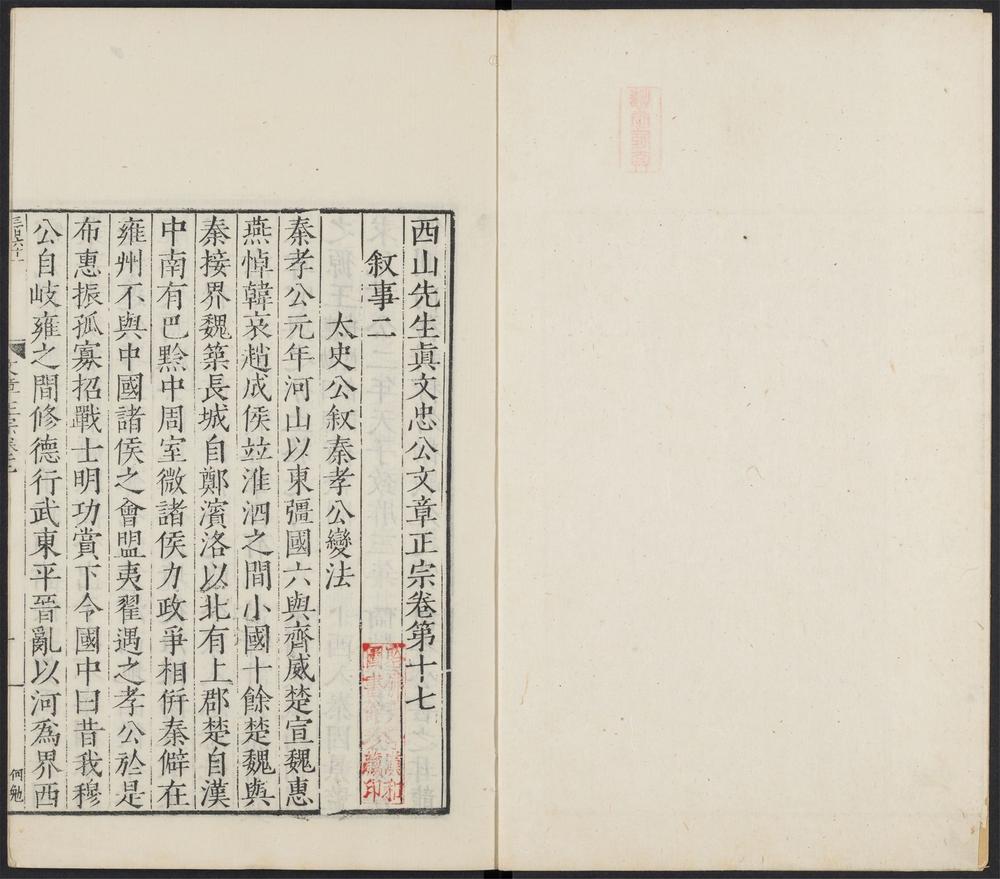 西山先生眞文忠公文章正宗卷第十七
叙事二
太史公叙秦孝公變法
秦孝公元年河山以東彊國六與齊威楚宣魏惠
燕悼韓哀趙成侯竝淮泗之間小國十餘楚魏與
秦接界魏築長城自鄭濱洛以北有上郡楚自漢
中南有巴黔中周室微諸侯力政爭相倂秦僻在
雍州不與中國諸侯之會盟夷翟遇之孝公於是
布惠振孤寡招戰士明功賞下令國中曰昔我穆
公自岐雍之間修德行武東平晉亂以河爲界西
何勉